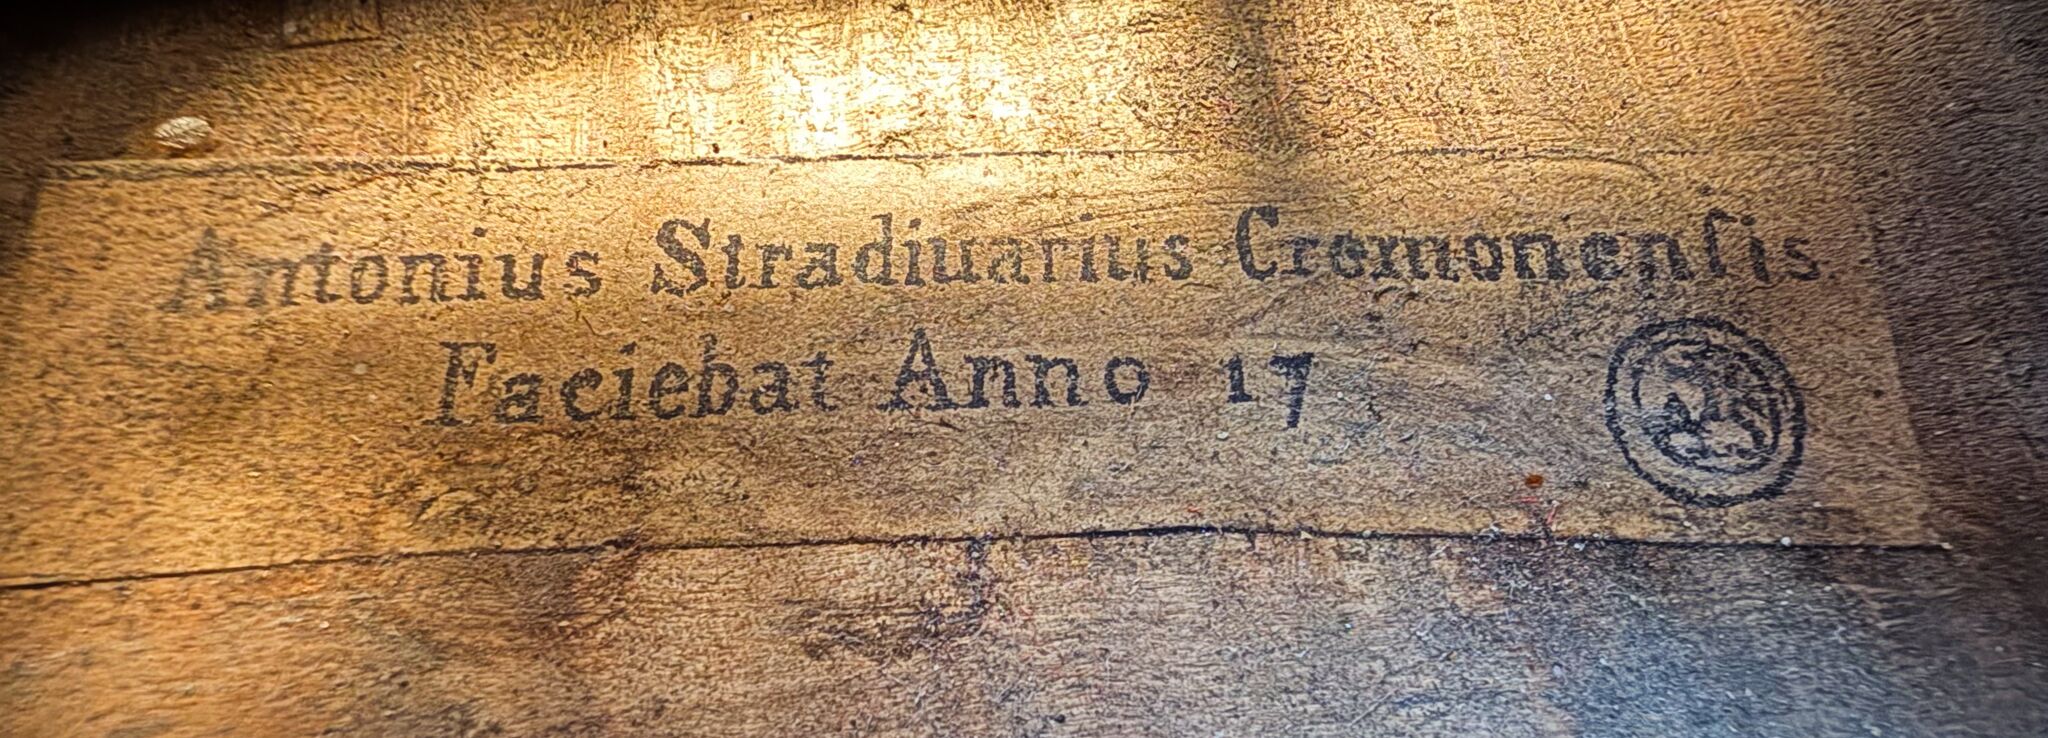 Antonius Stradiuarius Cremonenſis
Faciebat Anno 17